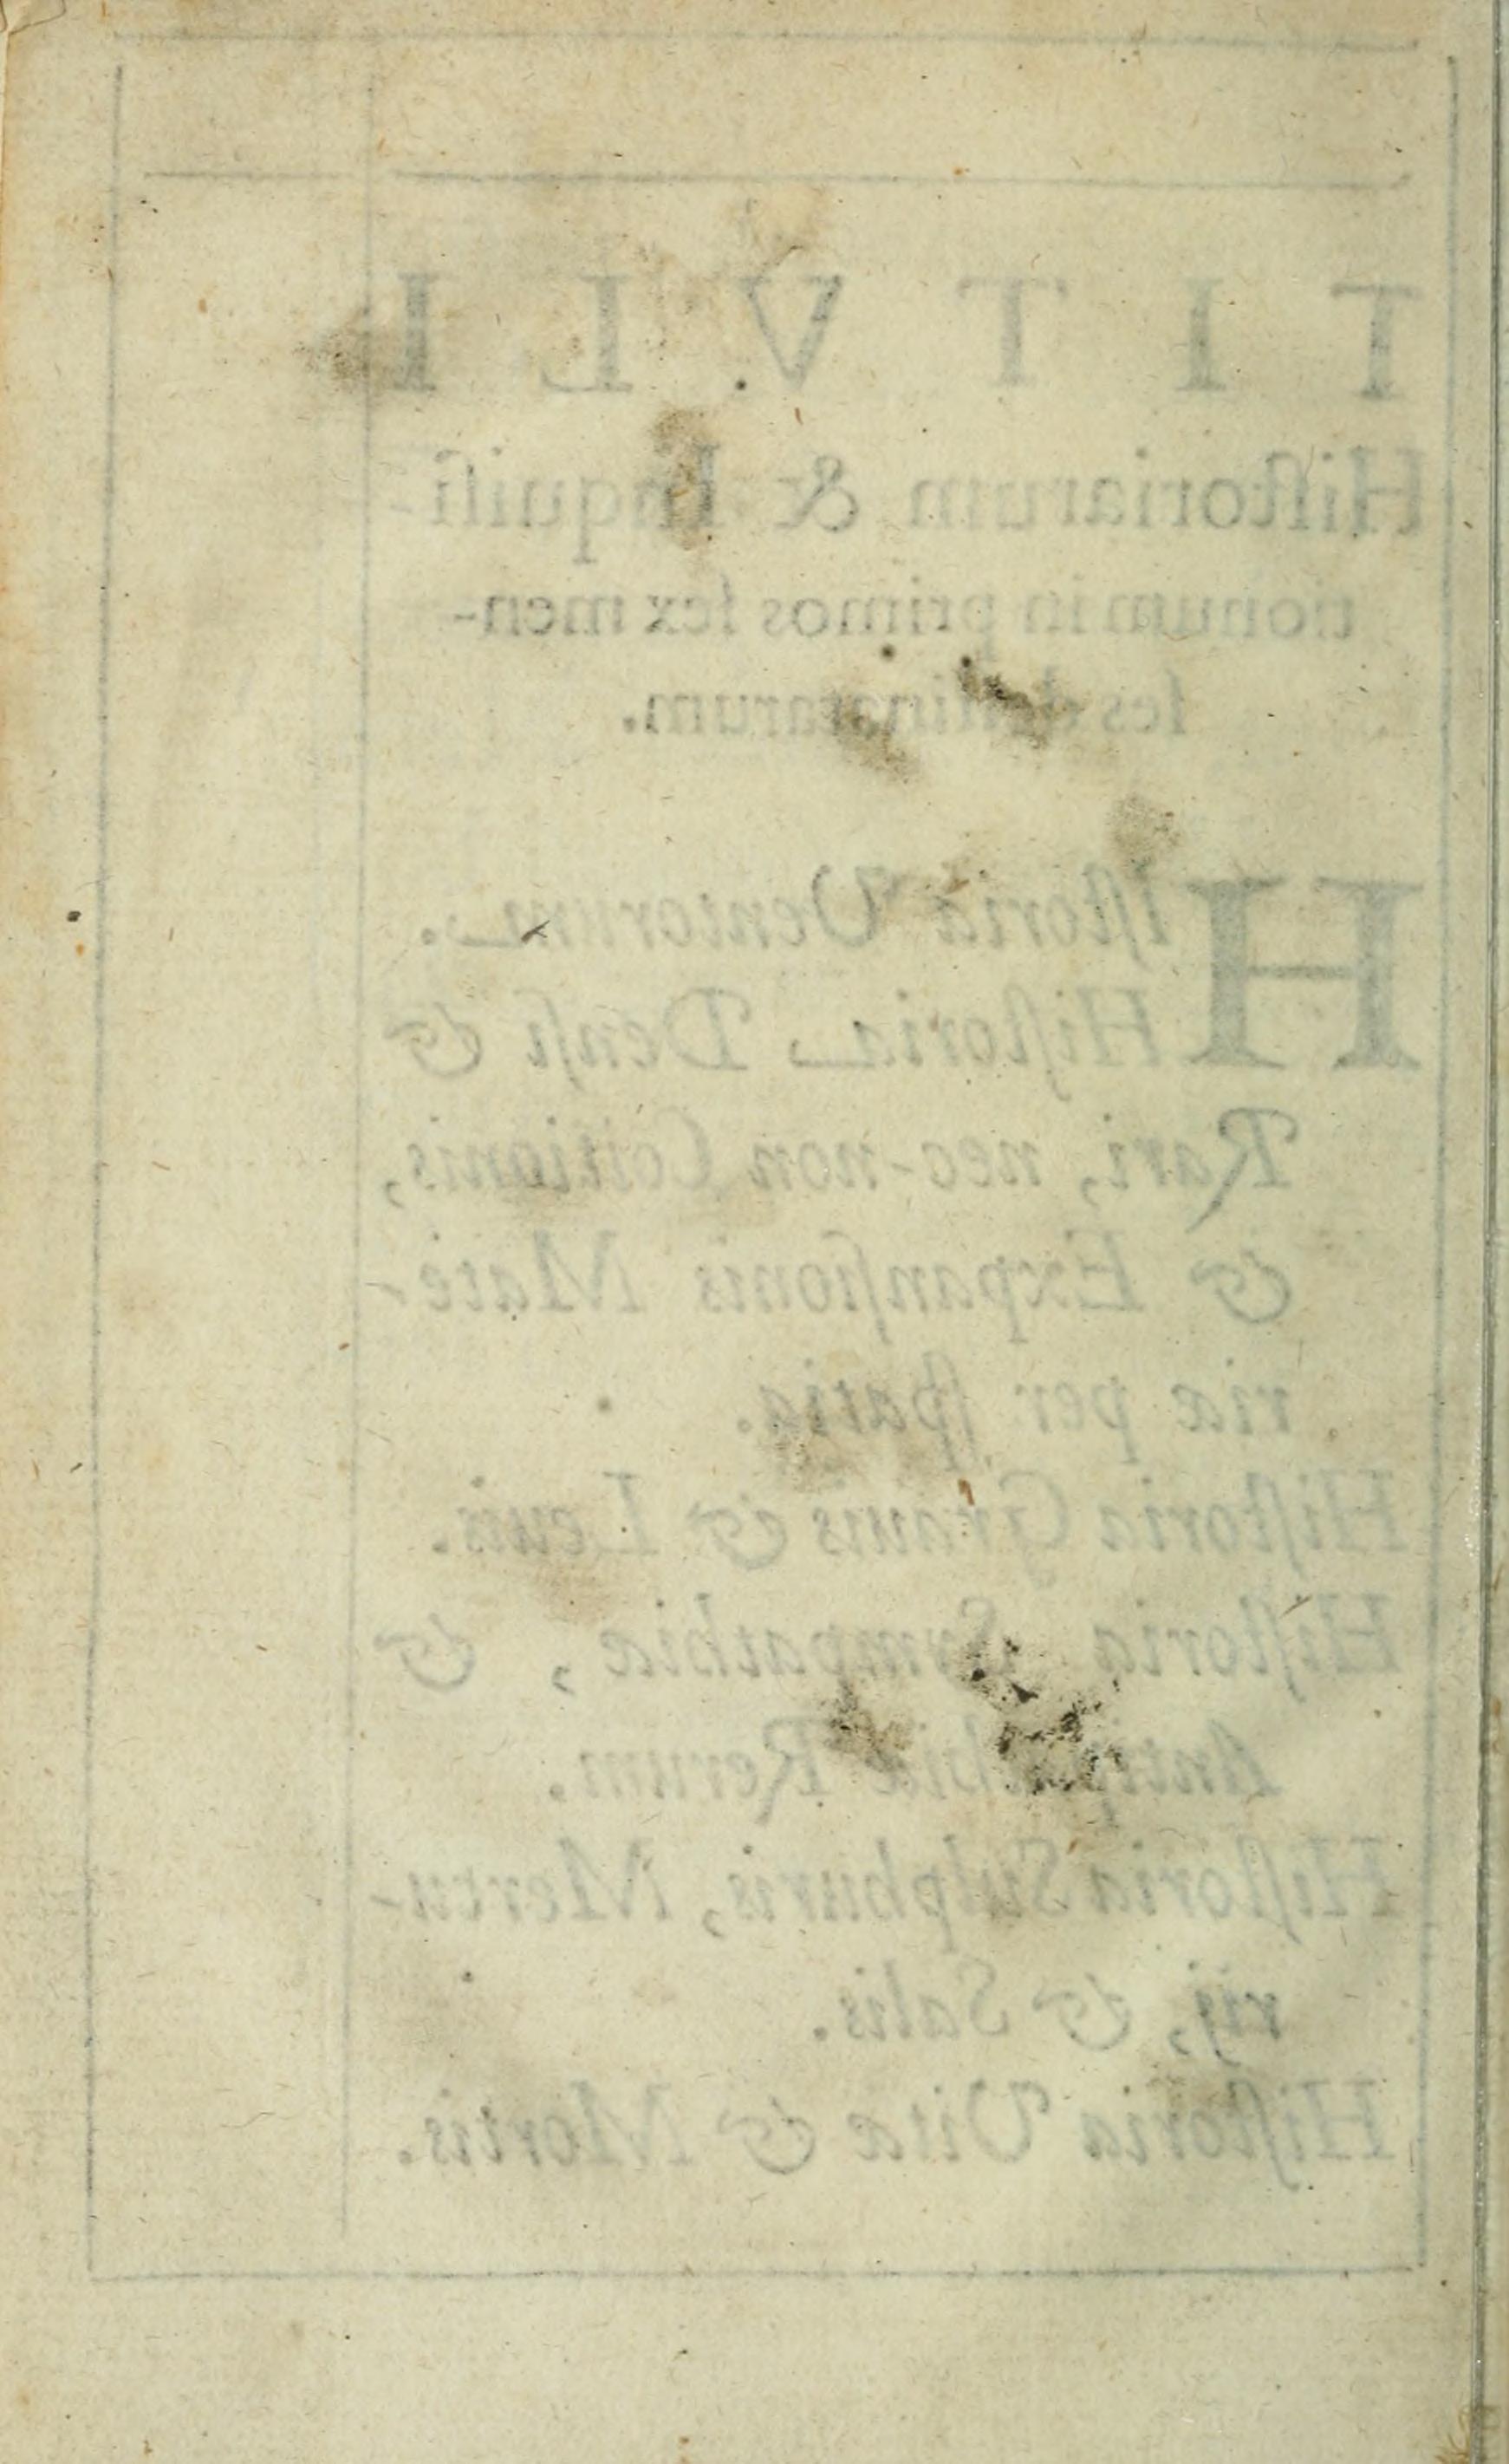 TITVLI
Hiſtoriarum & Inquiſi-
tionum in primos ſex men-
ſes deſtinatarum.
HIſtoria Ventorum.
Hiſtoria Denſi &
Rari, nec-non Coitionis,
& Expanſionis Mate-
riæ per ſpatia.
Hiſtoria Grauis & Leuis.
Hiſtoria Sympathiæ, &
Antipathiæ Rerum.
Hiſtoria Sulphuris, Mercu-
rij, & Salis.
Hiſtoria Vitæ & Mortis.